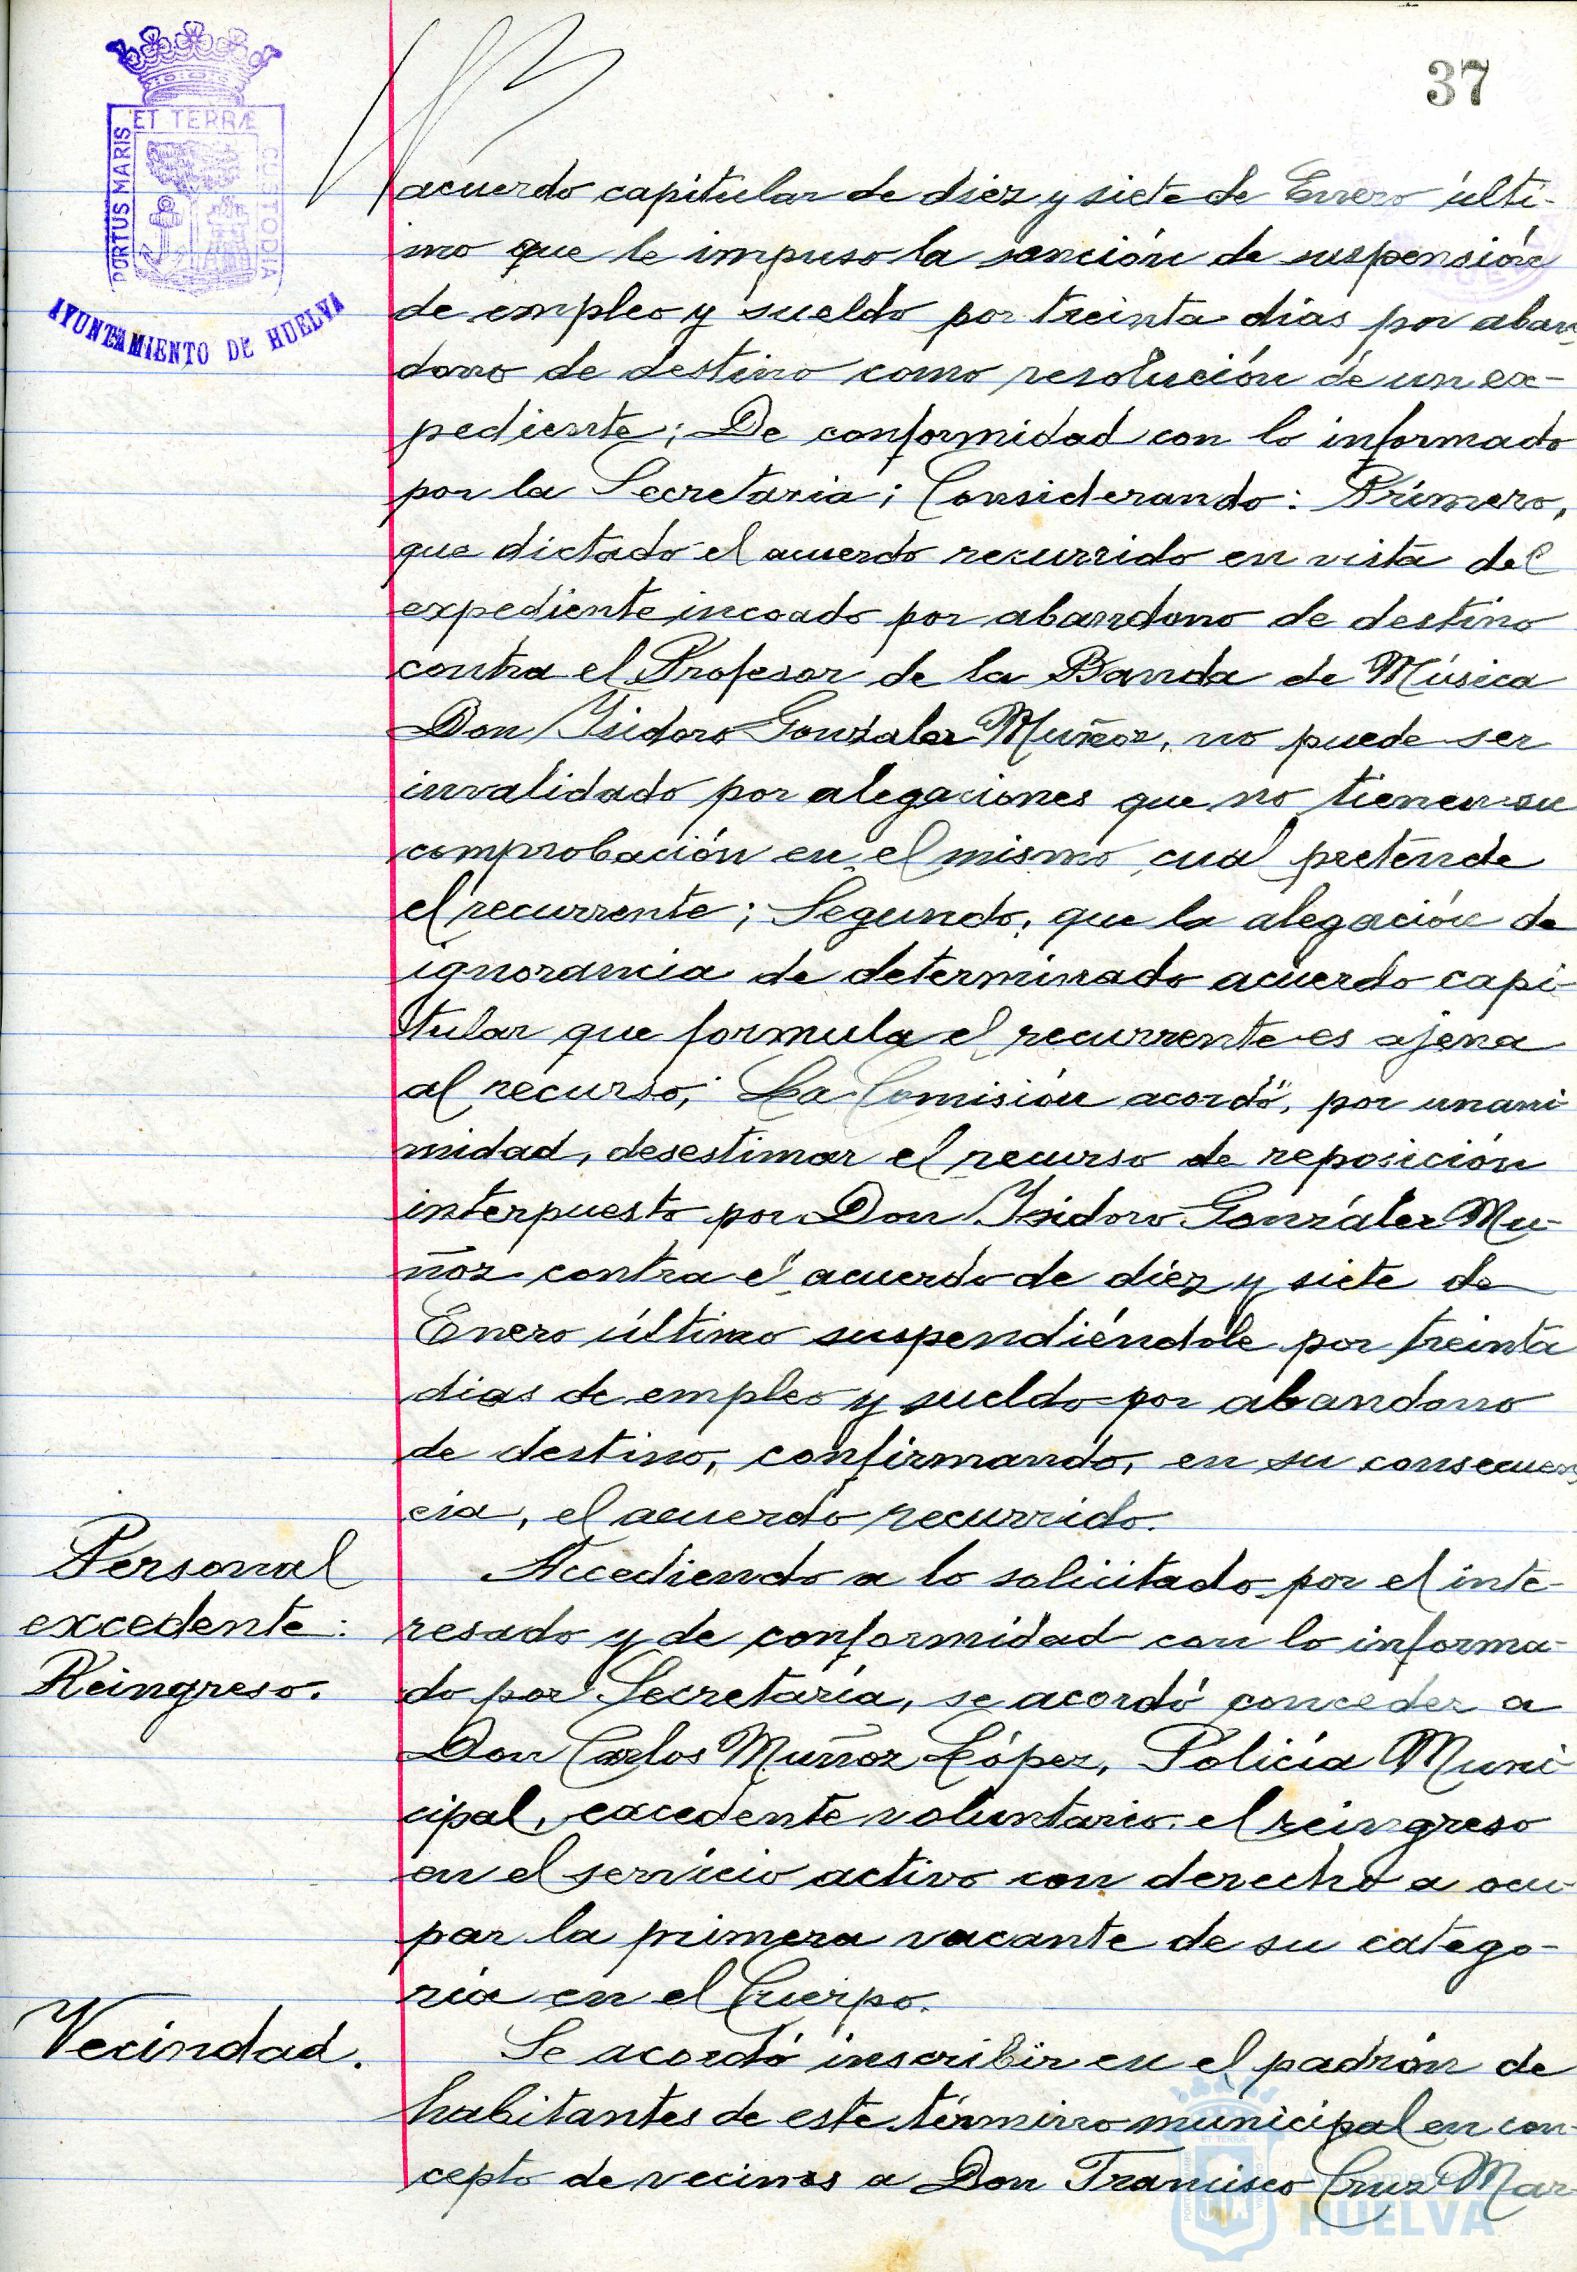 37
ET TERRÆ
PORTUS MARIS
CUSTODIA
AYUNTAMIENTO DE HUELVA
acuerdo capitular de diez y siete de Enero últi-
mo que le impuso la sanción de suspensión
de empleo y sueldo por treinta dias por aban
dono de destino como resolución de un ex-
pediente; De conformidad con lo informado
por la Secretaria; Considerando: Primero,
que dictado el acuerdo recurrido en vista del
expediente incoado por abandono de destino
contra el Profesor de la Banda de Música
Don Isidoro Gonzalez Muñoz, no puede ser
invalidado por alegaciones que no tienen su
comprobación en el mismo cual pretende
el recurrente; Segundo, que la alegación de
ignorancia de determinado acuerdo capi-
tular que formula el recurrente es ajena
al recurso; La Comisión acordó, por unani
midad, desestimar el recurso de reposición
interpuesto por Don Isidoro González Mu-
ñoz contra el acuerdo de diez y siete de
Enero último suspendiéndole por treinta
dias de empleo y sueldo por abandono
de destino, confirmando, en su consecuen
cia, el acuerdo recurrido.
Personal
excedente:
Reingreso.
Accediendo a lo solicitado por el inte-
resado y de conformidad con lo informa-
do por Secretaría, se acordó conceder a
Don Carlos Muñoz López, Policía Muni-
cipal, excedente voluntario, el reingreso
en el servicio activo con derecho a ocu-
par la primera vacante de su catego-
ria en el Cuerpo.
Vecindad.
Se acordó inscribir en el padrón de
habitantes de este término municipal en con-
cepto de vecinos a Don Francisco Cruz Mar-
Ayuntamiento de
HUELVA